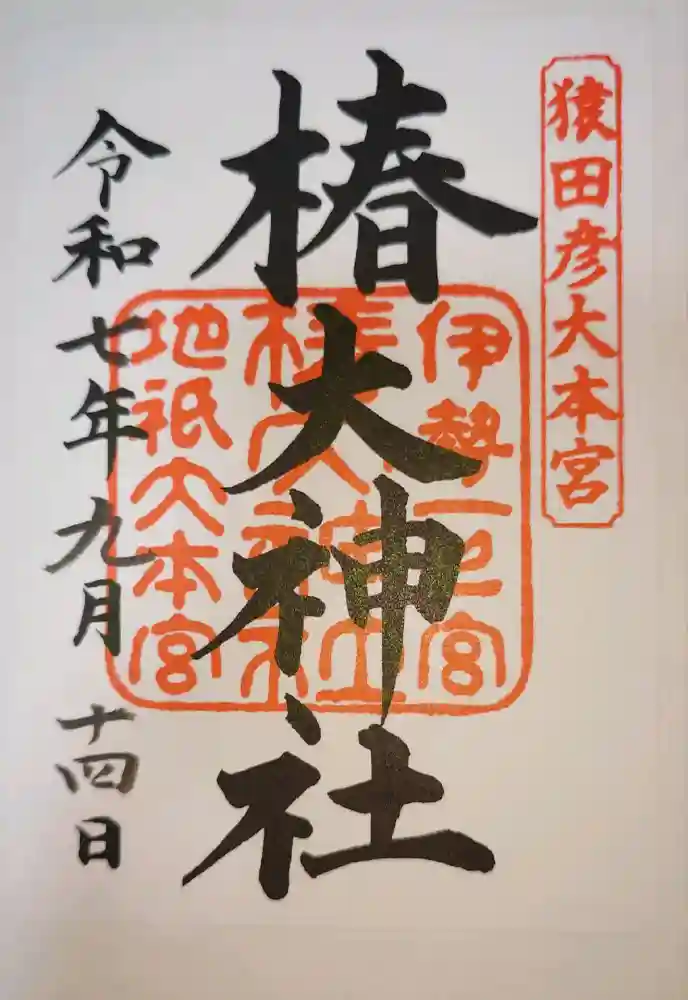 猿田彦大本宮
椿大神社
伊勢一之宮
椿大神社
地祇大本宮
令和七年九月十四日